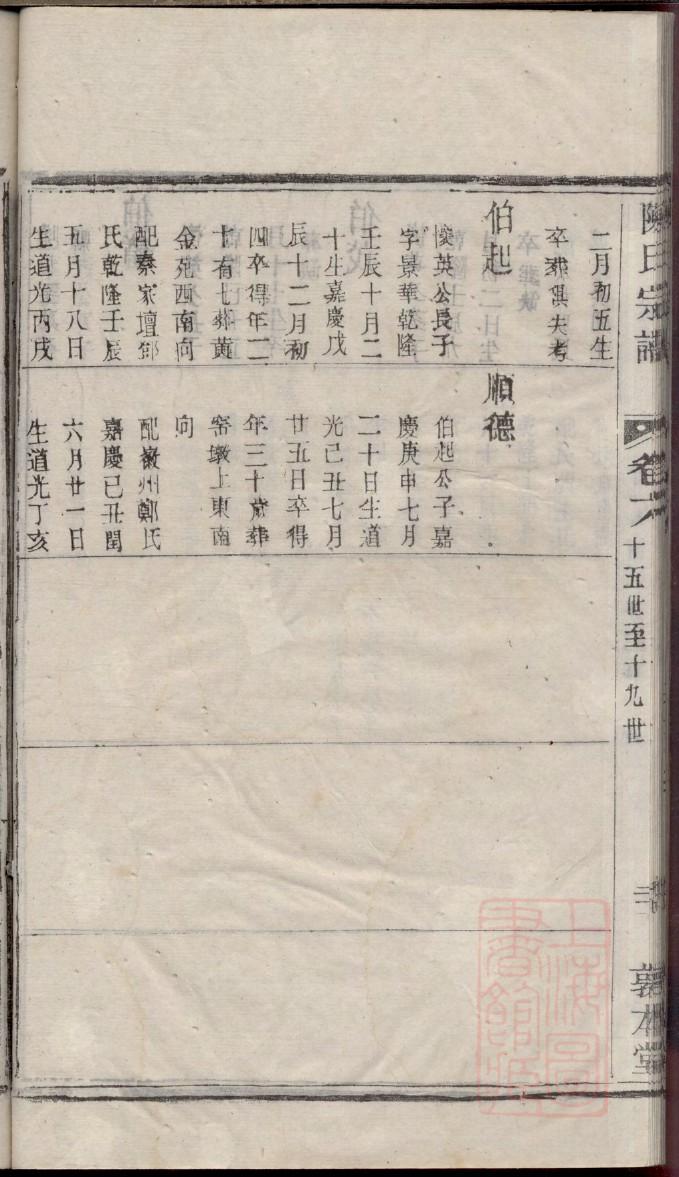 陳氏宗譜
卷六
十五世至十九世
慕本堂
二月初五生
卒葬俱失考
伯起
懷英公長子
字景華乾隆
壬辰十月二
十生嘉慶戊
辰十二月初
四卒得年三
十有七葬黃
金苑西南向
配秦家壇鄒
氏乾隆壬辰
五月十八日
生道光丙戌
順德
伯起公子嘉
慶庚申七月
二十日生道
光己丑七月
廿五日卒得
年三十歲葬
窑墩上東南
向
配徽州鄭氏
嘉慶己丑閏
六月廿一日
生道光丁亥
上海圖書館藏